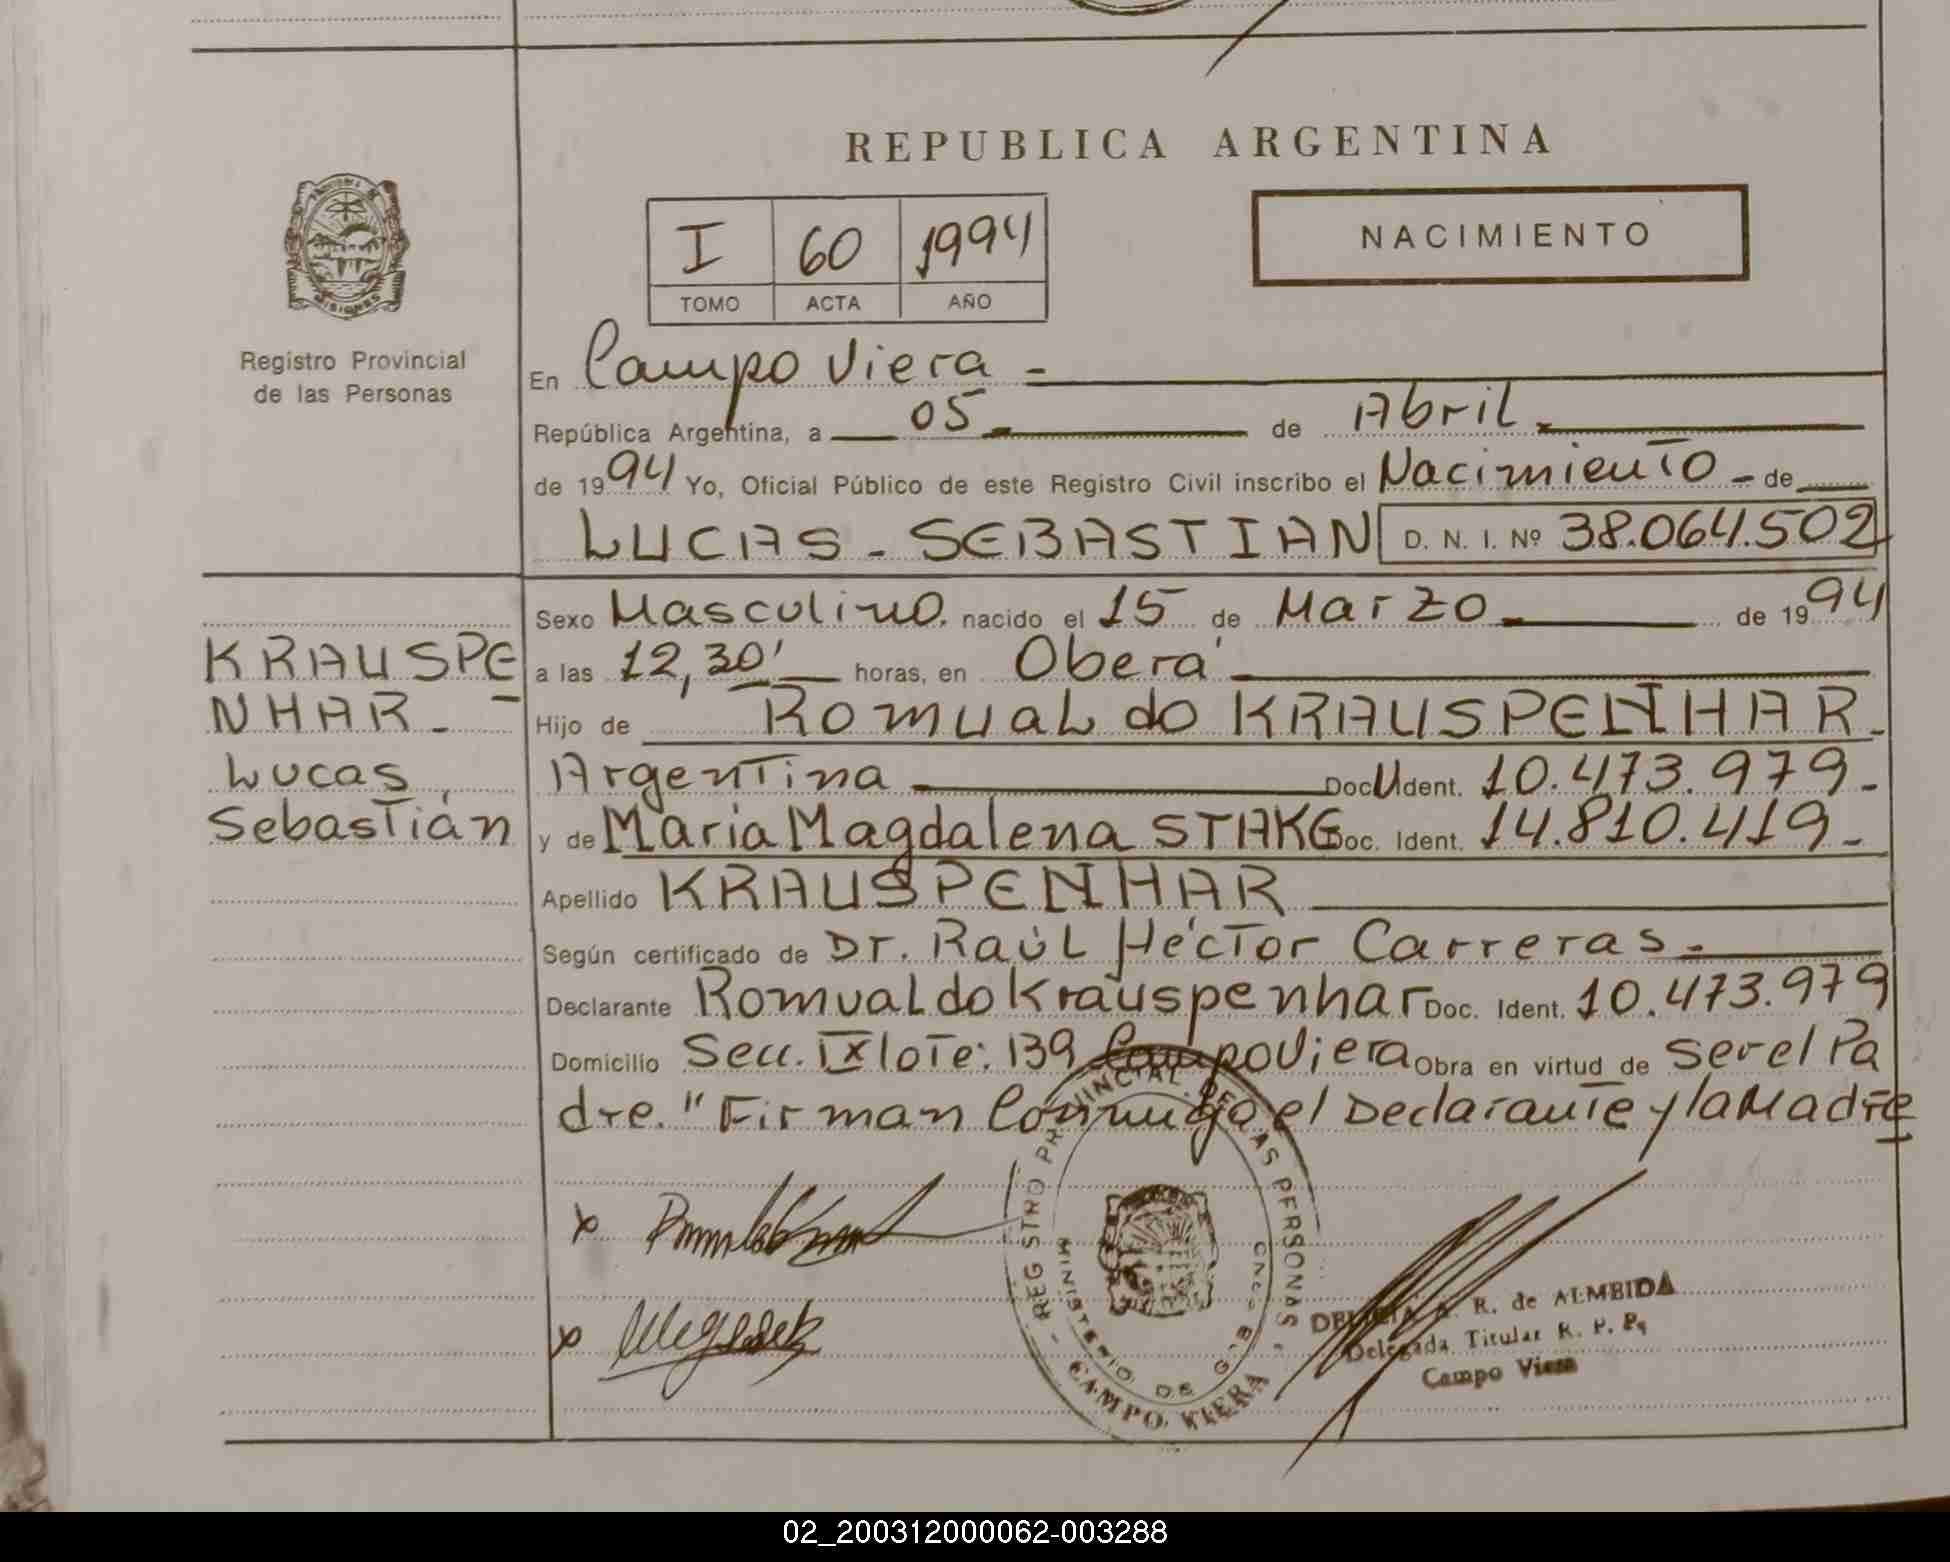 REPUBLICA ARGENTINA
I 60 1994
TOMO ACTA AÑO
NACIMIENTO
MISIONES
Registro Provincial
de las Personas
En Campo Viera -
República Argentina, a 05 de Abril
de 1994 Yo, Oficial Público de este Registro Civil inscribo el Nacimiento - de
LUCAS - SEBASTIAN D. N. I. Nº 38.064.502
KRAUSPE
NHAR -
Lucas
Sebastián
Sexo Masculino. nacido el 15 de Marzo de 1994
a las 12,30' horas, en Oberá
Hijo de Romualdo KRAUSPENHAR -
Argentina Doc. Ident. 10.473.979 -
y de María Magdalena STAKG Doc. Ident. 14.810.419 -
Apellido KRAUSPENHAR
Según certificado de Dr. Raúl Héctor Carreras -
Declarante Romualdo Krauspenhar Doc. Ident. 10.473.979
Domicilio Secc. IX lote: 139 Campo Viera Obra en virtud de ser el Pa
dre. "Firman Conmigo el Declarante y la Madre
REGISTRO PROVINCIAL DE LAS PERSONAS
MINISTERIO DE GOB
CAMPO VIERA
A. R. de ALMEIDA
Delegada Titular R. P. P.
Campo Viera
02_200312000062-003288